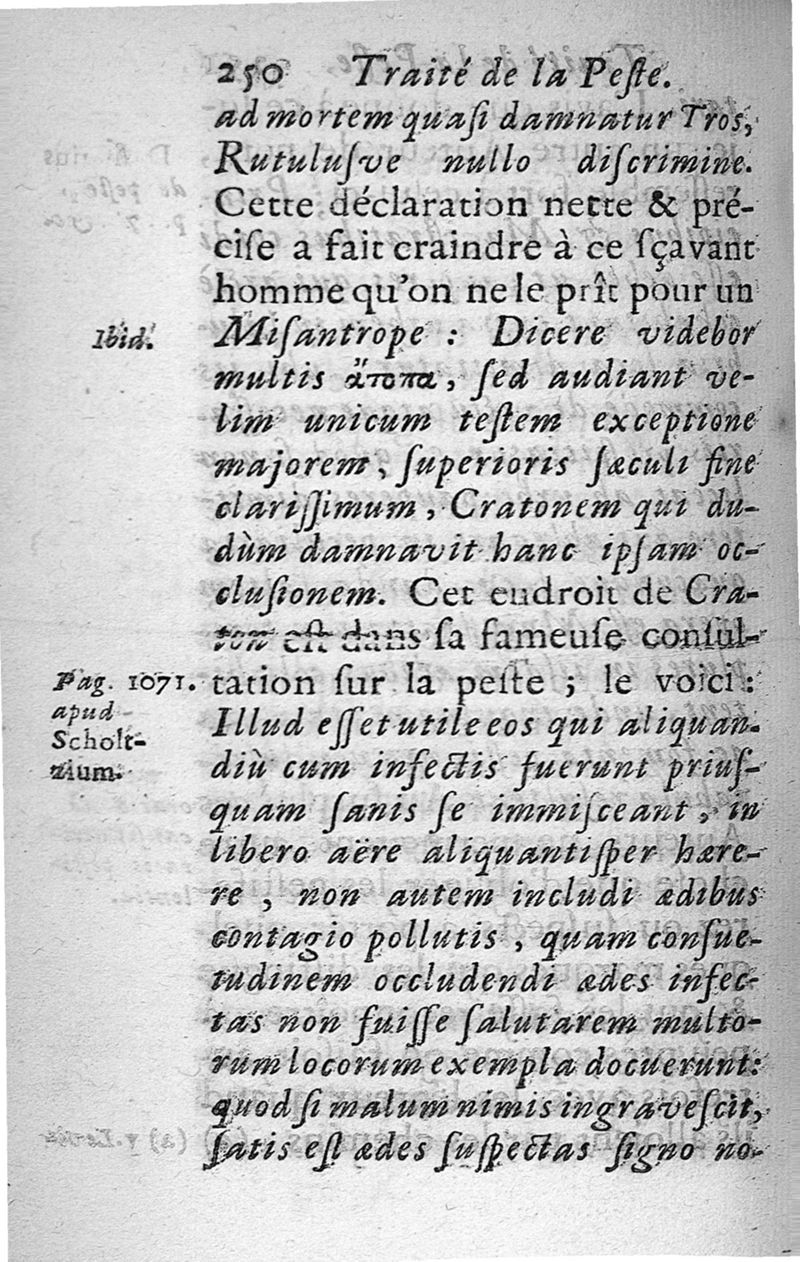 250 Traité de la Peſte.
ad mortem quaſi damnatur Tros,
Rutuluſve nullo diſcrimine.
Cette déclaration nette & pré-
ciſe a fait craindre à ce ſçavant
homme qu'on ne le prît pour un
Ibid.
Miſantrope : Dicere videbor
multis ἄτοπα, ſed audiant ve-
lim unicum teſtem exceptione
majorem, ſuperioris ſæculi fine
clariſſimum, Cratonem qui du-
dùm damnavit hanc ipſam oc-
cluſionem. Cet endroit de Cra-
ton eſt dans ſa fameuſe conſul-
Pag. 1071.
apud
Scholt-
zium.
tation ſur la peſte ; le voici :
Illud eſſet utile eos qui aliquan-
diù cum infectis fuerunt priuſ-
quam ſanis ſe immiſceant, in
libero aëre aliquantiſper hære-
re, non autem includi ædibus
contagio pollutis, quam conſue-
tudinem occludendi ædes infec-
tas non fuiſſe ſalutarem multo-
rum locorum exempla docuerunt:
quod ſi malum nimis ingraveſcit,
ſatis eſt ædes ſuſpectas ſigno no-